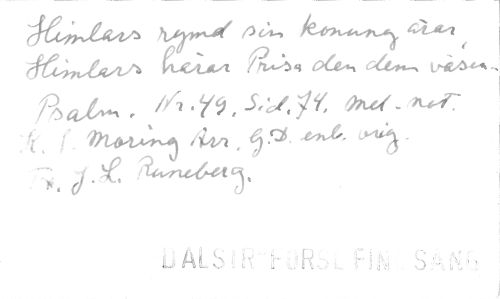 Himlars rymd sin konung ärar,
Himlars härar Prisa den dem väsen-
Psalm. Nr. 49, Sid. 74. mel-not.
K. P. Moring Arr. G.D. enl. orig.
Tx. J. L. Runeberg.
DALSTR FÖRSL FIN SANG